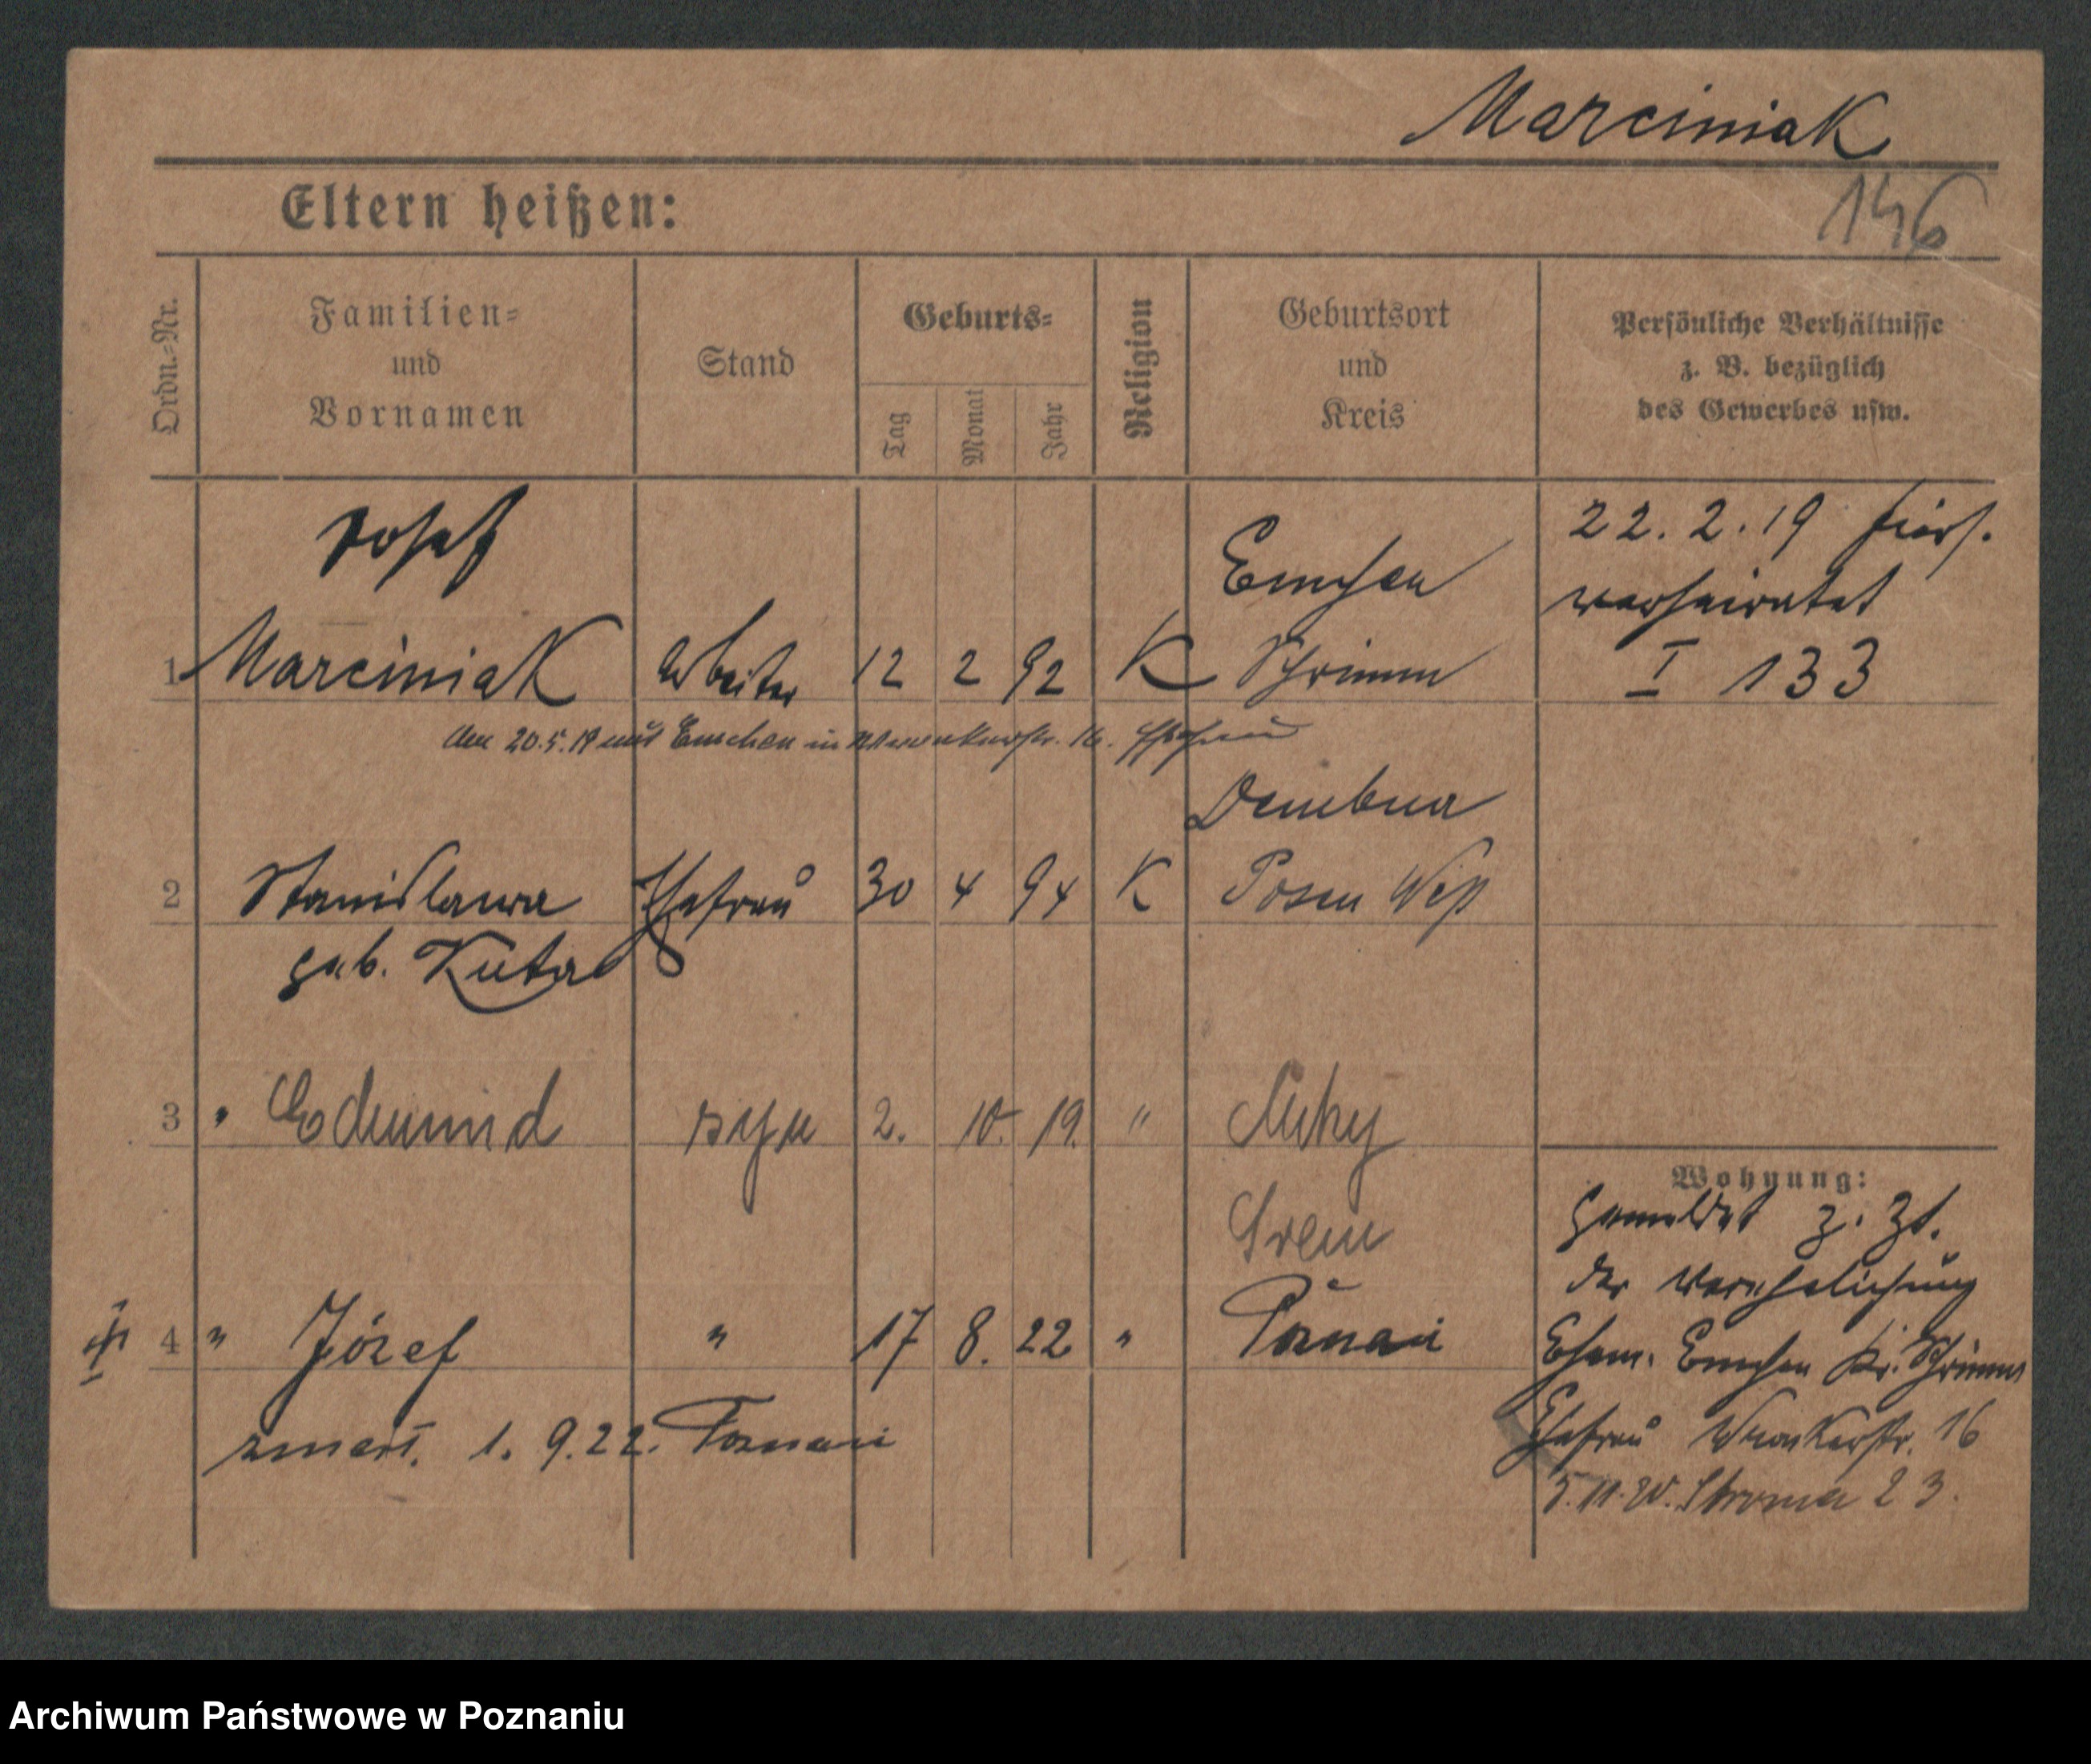 Marciniak
146
Eltern heißen:
Ordn.-Nr.
Familien-
und
Vornamen
Stand
Geburts-
Tag
Monat
Jahr
Religion
Geburtsort
und
Kreis
Persönliche Verhältnisse
z. B. bezüglich
des Gewerbes usw.
Josef
Emchen
22. 2. 19 hiers.
verheiratet
1 Marciniak Arbeiter 12 2 92 K Schrimm
I 133
20.5.19 aus Emchen in Wronkerstr. 16. Ehefrau
Dembsen
2 Stanislawa Ehefrau 30 4 94 K Posen West
geb. Kuta
3 " Edmund syn 2. 10. 19. "
Śrem
Wohnung:
gemeldet z. Zt.
der Verehelichung
4 " Józef " 17 8. 22 " Poznań
Ehem. Emchen Kr. Schrimm
zmarł. 1. 9. 22. Poznań
Ehefrau Wronkerstr. 16
5. 11. 20. Stroma 23.
Archiwum Państwowe w Poznaniu